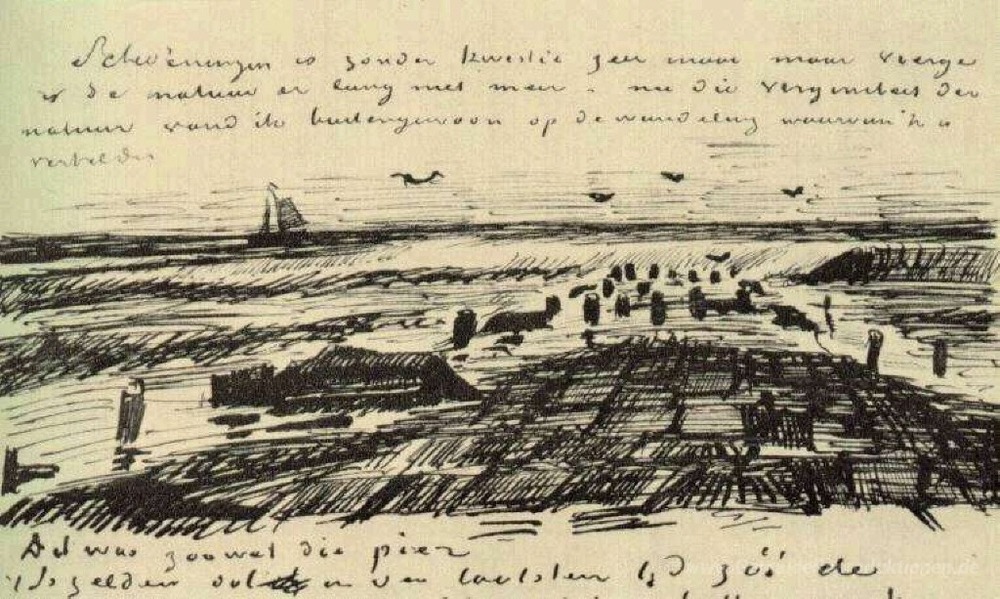 Scheveningen is zonder kwestie zeer mooi maar vierge
is de natuur er lang niet meer. nu die der
natuur vond ik buitengewoon op de wandeling waarvan 'k u
vertelde
Dit was zoowat die pier
't Is zelden dat in den laatsten tijd zóó de